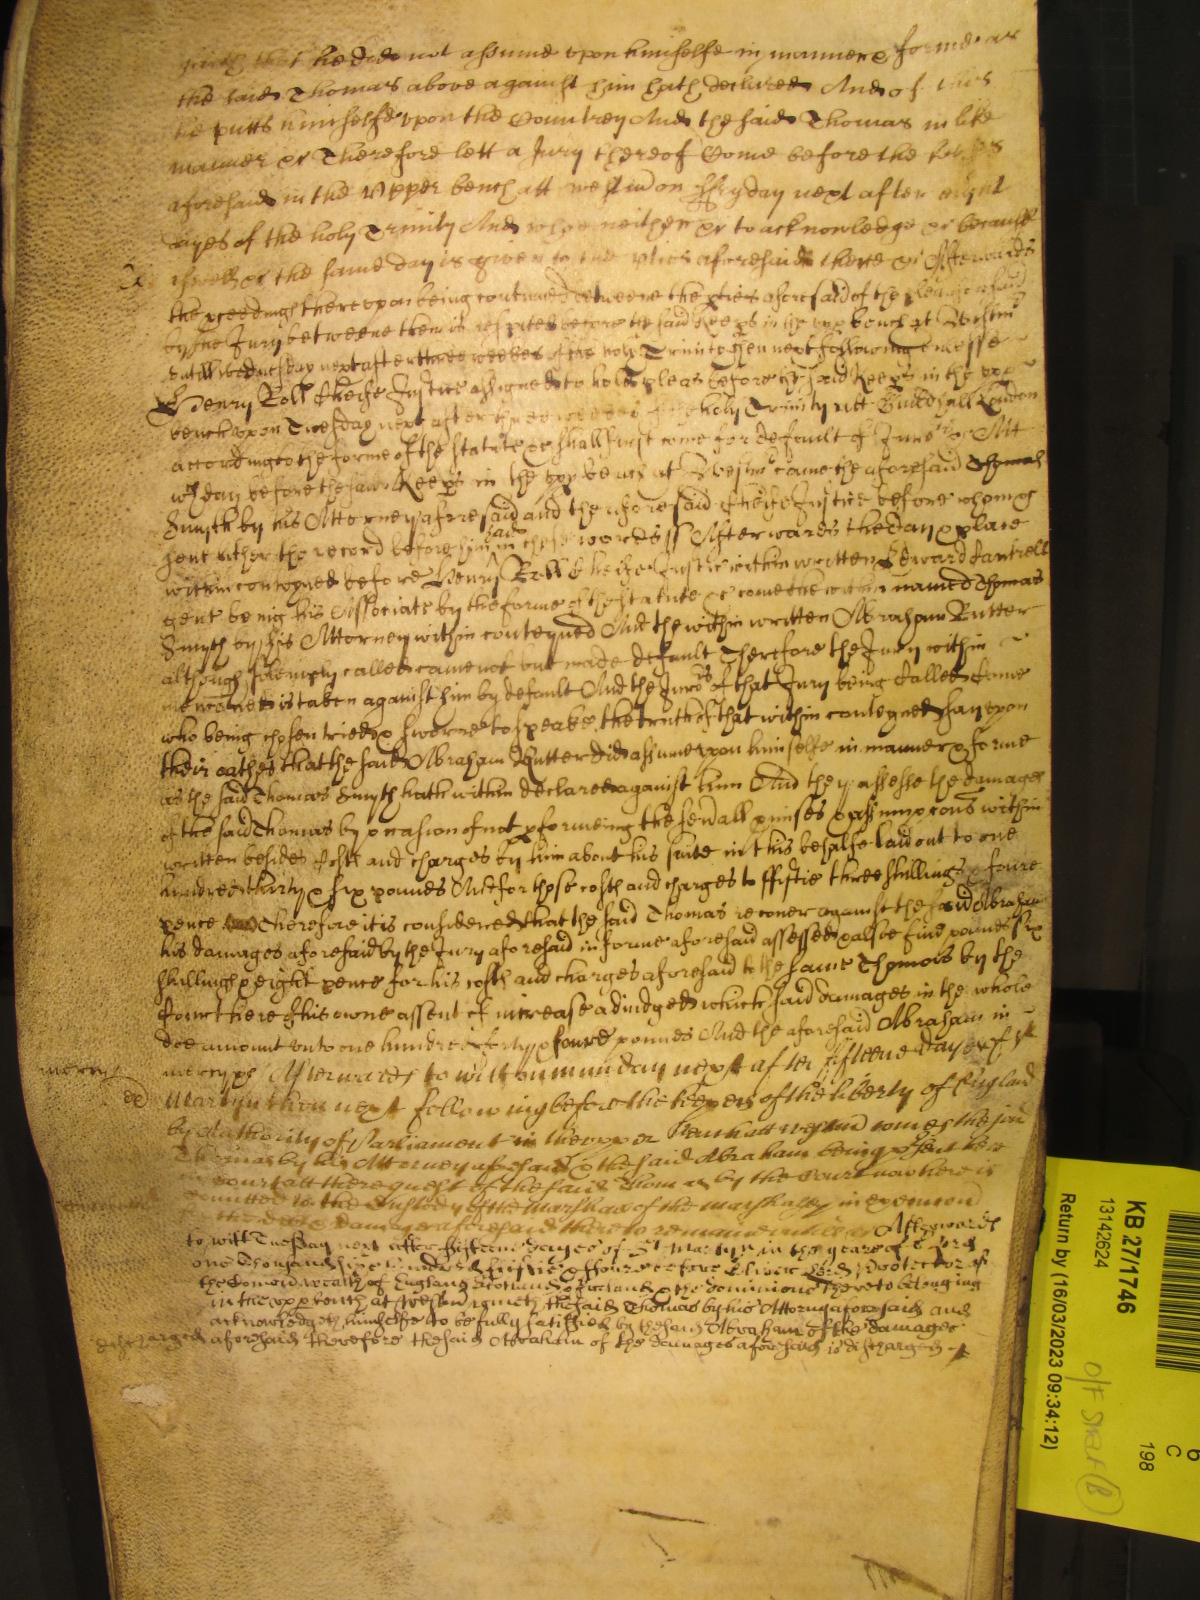 that he did not assume upon himselfe in manner & forme as
the said Thomas above against him hath declared And of this
he putts himselfe upon the Countrey And the said Thomas in like
manner &c Therefore lett a Jury thereof Come before the
aforesaid in the Upper bench att Westm on ffryday next after eight
dayes of the holy Trinity And who neither &c to acknowledge &c because
aswell &c the same day is given to the pties aforesaid there &c Afterwards
the pceedings thereupon being continued betweene the pties aforesaid of the plea aforesaid
by the Jury betweene them is respited before the said Keeps in the upp bench at Westm
untill Wednesday next after three weekes of the holy Trinity then next following unlesse
Henry Roll Cheife Justice assigned to hold pleas before the said Keeps in the upp
bench upon Tuesday next after three weekes of the holy Trinity att Guildhall London
according to the forme of the statute &c shall first come for default of Juro &c Att
wch day before the said Keeps in the upp bench at Westm came the aforesaid Thomas
Smyth by his Attorney aforesaid and the aforesaid Cheife Justice before whom &c
sent hither the record before him had in these words ss Afterwards the day & place
within conteyned before Henry Roll Cheife Justice within written Edward Cantrell
gent being his Associate by the forme of the statute &c cometh the within named Thomas
Smyth by his Attorney within conteyned And the within written Abraham Rutter
although solemnly called came not but made default Therefore the Jury within
menconed is taken against him by default And the Juro of that Jury being Called Come
who being chosen tried & sworne to speake the truth of that within conteyned say upon
their oathes that the said Abraham Rutter did assume upon himselfe in manner & forme
as the said Thomas Smyth hath within declared against him And they assesse the damages
of the said Thomas by occasion of not pformeing the severall pmises & assumpcons within
written besides Costs and charges by him about his suite in this behalfe laid out to one
hundred thirty & six pounds And for those costs and charges to ffiftie three shillings & foure
pence Therefore it is considered that the said Thomas recover against the said Abraham
his damages aforesaid by the Jury aforesaid in forme aforesaid assessed & alsoe five pounds six
shillings & eight pence for his costs and charges aforesaid to the same Thomas by the
Court here of his owne assent of increase adiudged which said damages in the whole
doe amount unto one hundred forty & foure pounds And the aforesaid Abraham in
mercy
mercy &c Afterwards to witt on munday next after fifteene dayes of St
Martyn then next following before the Keepers of the liberty of England
by Authority of Parliament in the upper Bench att Westm comes the said
Thomas by his Attorney aforesaid & the said Abraham being psent here
in court att the request of the said Thomas by the Court now here is
comitted to the Custody of the Marshall of the Marshalsey in execucon
for the damages aforesaid there to remaine untill &c Afterwards
to witt Tuesday next after fifteene dayes of St Martyn in the yeare of or Lord
one thousand six hundred fiftie & foure before Oliver Lord Protector of
the Comonwealth of England Scotland & Ireland & the dominions thereto belonging
in the upp bench at Westm cometh the said Thomas by his Attorny aforesaid and
acknowledgeth himselfe to be fully satisfied by the said Abraham of the damages
discharged
aforesaid therefore the said Abraham of the damages aforesaid is discharged
KB 27/1746
13142624
Return by (16/03/2023 09:34:12)
O/F Shelf B
198
C
6